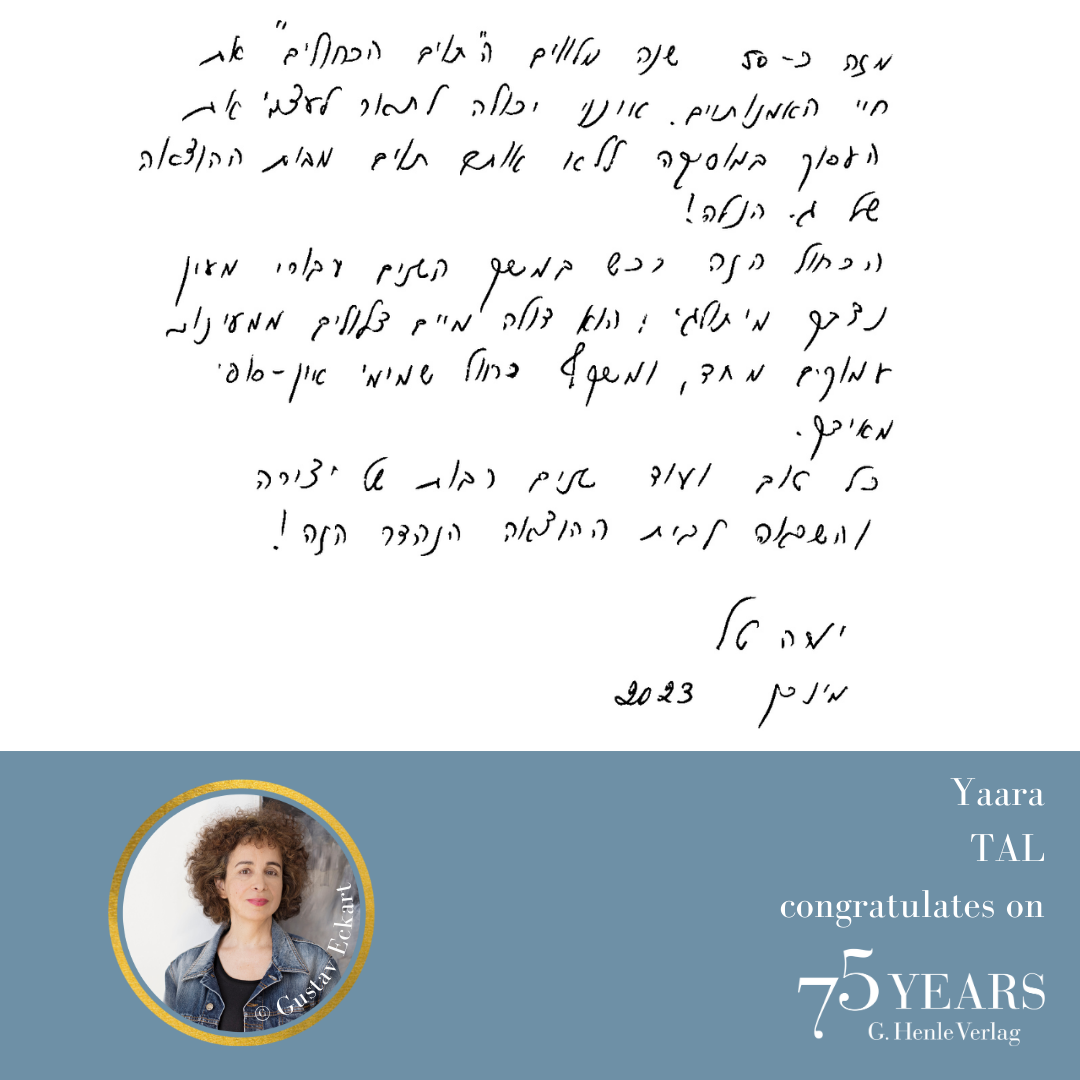 מזה כ-50 שנה מלווים ה"תוים הכחולים" את
חיי האמנותיים. אינני יכולה לתאר לעצמי את
העסוק במוסיקה ללא אותם תוים מבית ההוצאה
של ג. הנלה!
הכחול הזה רכש במשך השנים עבורי מעין
נדבך מיתולגי; הוא דולה מיים צלולים ממעינות
עמוקים מחד, ומשקף כחול שמימי אין-סופי
מאידך.
כל טוב ועוד שנים רבות של יצירה
והשראה לבית ההוצאה הנהדר הזה!
יערה טל
מינכן 2023
Yaara
TAL
congratulates on
75 YEARS
G. Henle Verlag
© Gustav Eckart